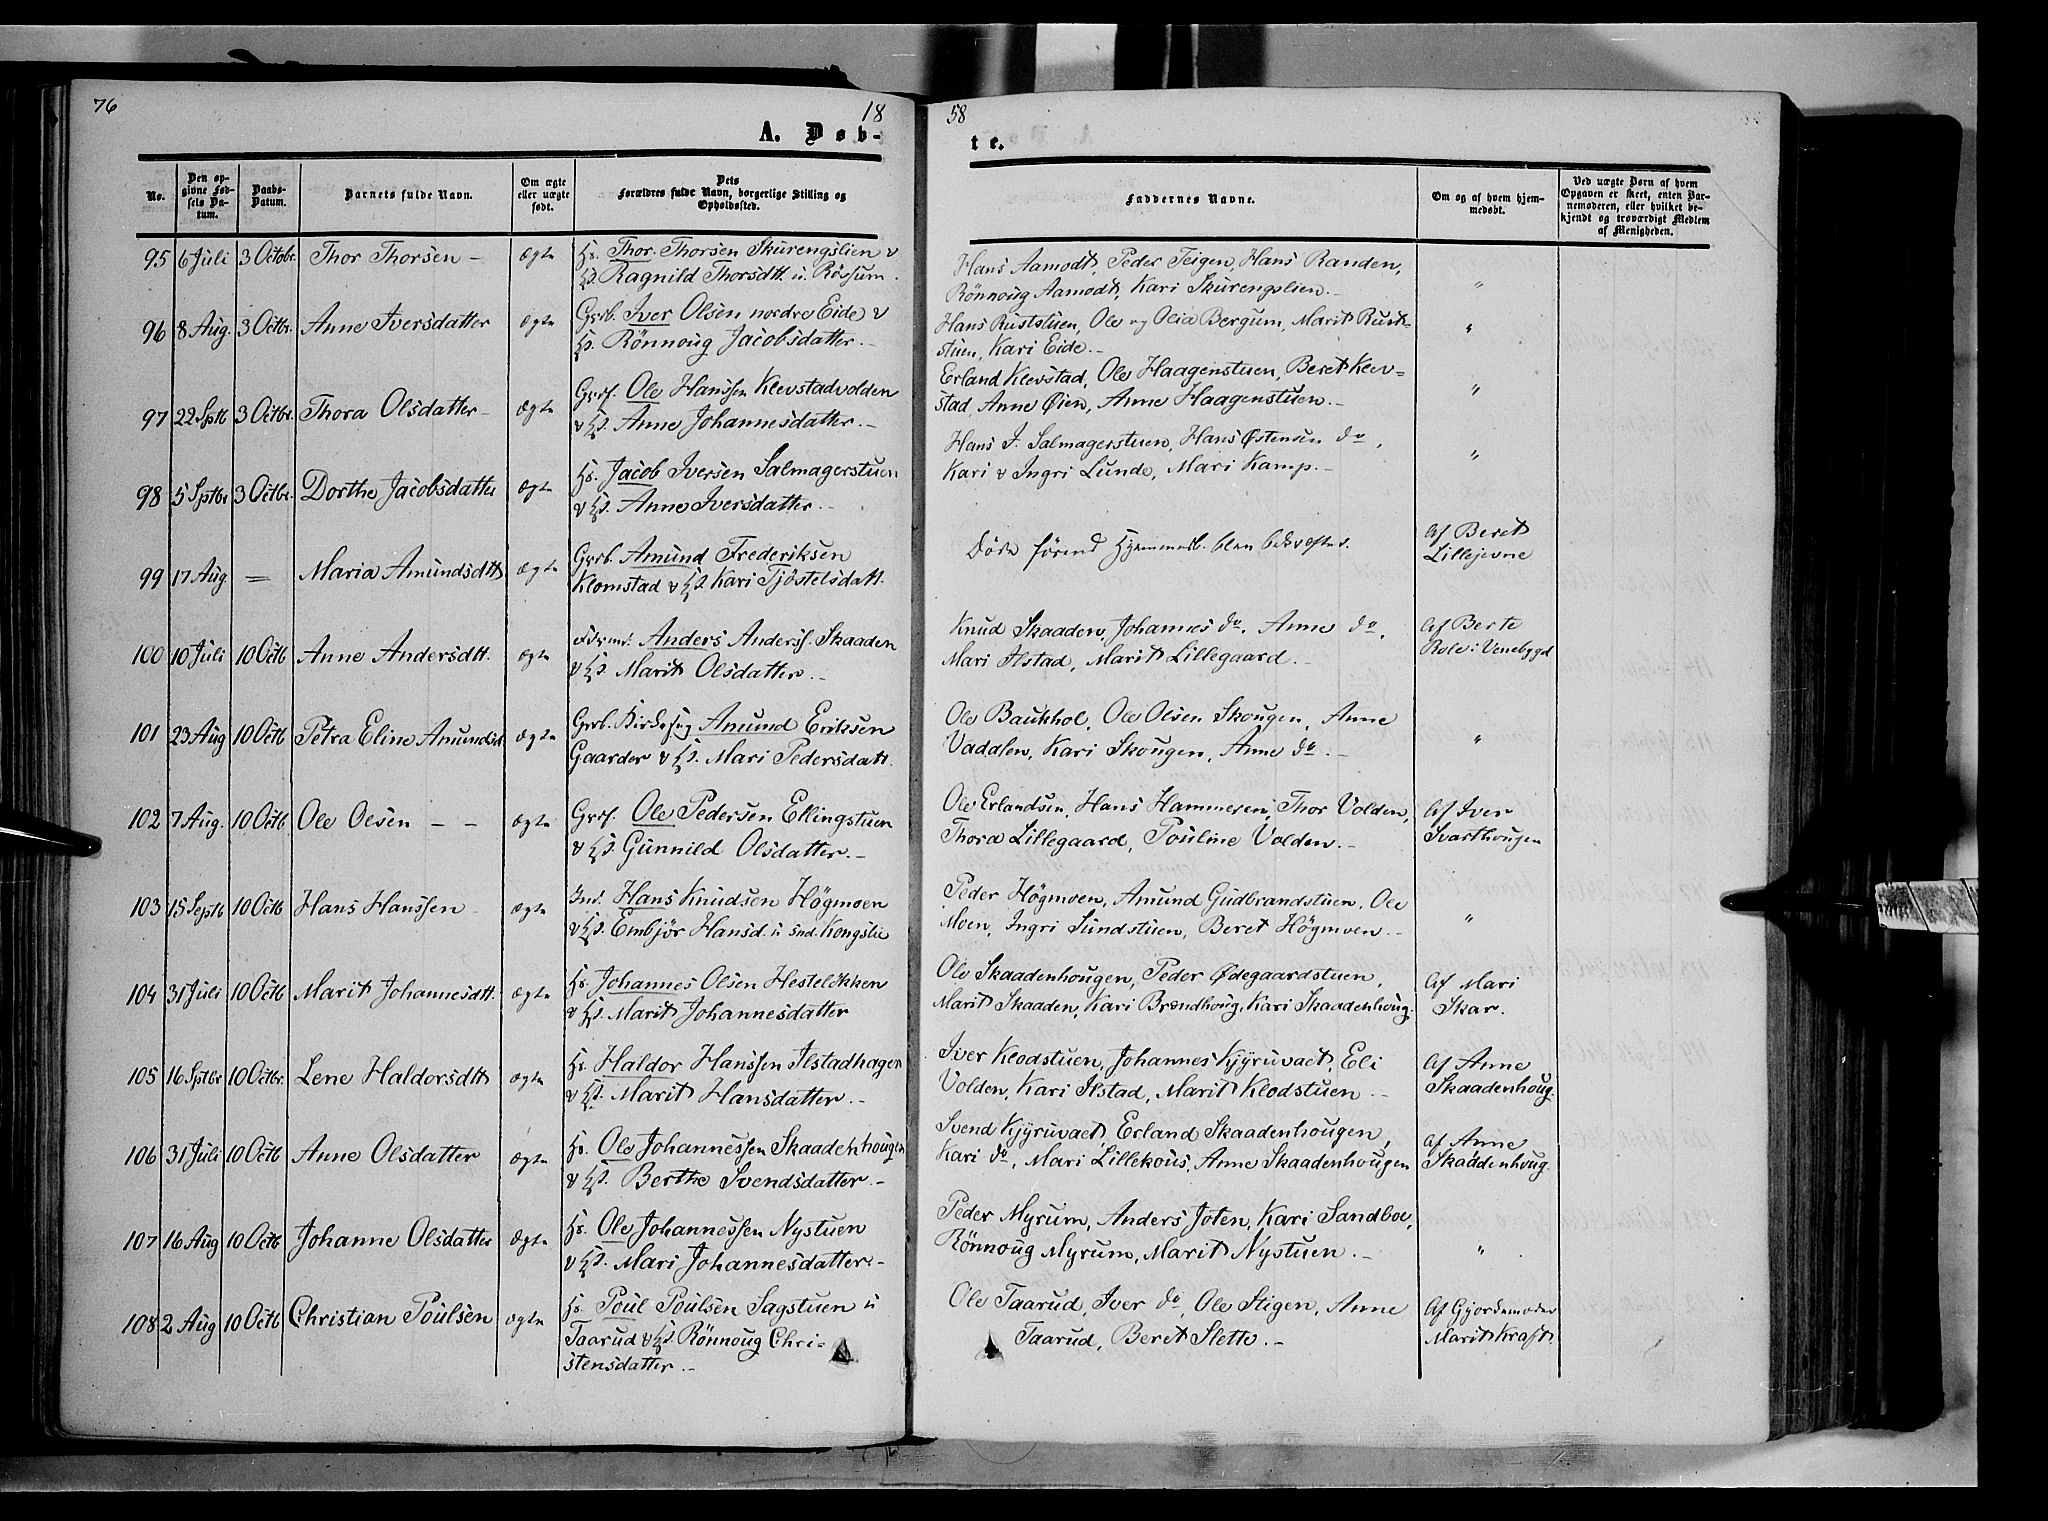 76
18
58
A. Døb-
te.
No.
Den op-
givne Fød-
sels Da-
tum.
Daabs-
Datum.
Barnets fulde Navn.
Om ægte
eller uægte
født.
Dets
Forældres fulde Navn, borgerlige Stilling og
Opholdssted.
Faddernes Navne.
Om og af hvem hjem-
medøbt.
Ved uægte Børn af hvem
Opgaven er skeet, enten Bar-
nemoderen, eller hvilket be-
kjendt og troværdigt Medlem
af Menigheden.
95 6 Juli 3 Octobr. Thor Thorsen – ægte
Hs. Thor Thorsen Skurengslien &
Ragnild Thorsdtt. u. Røssum.
Hans Aamodt, Peder Teigen, Hans Randen,
Rönnoug Aamodt, Kari Skurengslien.– "
96 8 Aug. 3 Octbr. Anne Iversdatter ægte
Grb. Iver Olsen nordre Eide &
Rönnoug Jacobsdatter.–
Hans Ruststuen, Ole og Olia Bergum, Marit Rust-
stuen, Kari Eide.– "
97 22 Sptb 3 Octbr. Thora Olsdatter – ægte
Ole Hanssen Klevstadvolden
& Anne Johannesdatter.–
Erland Klevstad, Ole Haagenstuen, Beret Klev=
stad, Anne Øien, Anne Haagenstuen.– "
98 5 Sptbr 3 Octbr. Dorthe Jacobsdatter ægte
Hs. Jacob Iversen Salmagerstuen
& Anne Iversdatter.–
Hans J. Salmagerstuen, Hans Østensen do,
Kari & Ingri Lunde, Mari Kamp.– "
99 17 Aug = Maria Amundsdtt ægte
Grb. Amund Frederiksen
Klomstad & Kari Tjöstelsdatt.
Døde førend Hjemmedb. blev bekræftet.
Af Beret
Lillejevne
100 10 Juli 10 Octb Anne Andersdtt. ægte
Anders Anders. Skaaden
& Marit Olsdatter.–
Knud Skaaden, Johannes do, Anne do,
Mari Ilstad, Marit Lillegaard.–
Af Berte
Role i Venebygd
101 23 Aug 10 Octb Petra Eline Amundsd ægte
Grb. Amund Eriksen
Gaarder & Mari Pedersdatt.
Ole Baukhol, Ole Olsen Skougen, Anne
Vaddlen, Kari Skougen, Anne do.– "
102 7 Aug. 10 Octb Ole Olsen – – ægte
Ole Pedersen Ellingstuen
& Gunnild Olsdatter.–
Ole Erlandsen, Hans Hammeren, Thor Volden,
Thora Lillegaard, Pouline Volden.–
Af Iver
Svarthougen
103 15 Septb 10 Octb Hans Hanssen – ægte
Ind. Hans Knudsen Högmoen
& Embjör Hansd. u. Snd. Kongslie
Peder Högmoen, Amund Gudbrandstuen, Ole
Moen, Ingri Sundstuen, Beret Högmoen.– "
104 31 Juli 10 Octb Marit Johannesdtt. ægte
Hs. Johannes Olsen Hestelökken
& Marit Johannesdatter
Ole Skaadenhougen, Peder Ødegaardstuen,
Marit Skaaden, Kari Brændhoug, Kari Skaadenhoug.
Af Mari
Skar.
105 16 Sptbr 10 Octbr. Lene Haldorsdtt ægte
Hs. Haldor Hanssen Ilstadhagen
& Marit Hansdatter.–
Iver Klodstuen, Johannes Kjÿruvaet, Eli
Volden, Kari Ilstad, Marit Klodstuen.–
Af Anne
Skaadenhoug.
106 31 Juli 10 Octb Anne Olsdatter ægte
Hs. Ole Johannessen Skaadenhougen
& Berthe Svendsdatter.–
Svend Kjÿruvaet, Erland Skaadenhougen,
Kari do, Mari Lillekous, Anne Skaadenhougen
Af Anne
Skaddenhoug.
107 16 Aug 10 Octb Johanne Olsdatter ægte
Hs. Ole Johannessen Nystuen
& Mari Johannesdatter.–
Peder Myrum, Anders Joten, Kari Sandboe,
Rönnoug Myrum, Marit Nystuen.– "
108 2 Aug 10 Octb Christian Poulsen ægte
Hs. Poul Poulsen Sagstuen u
Taarud & Rönnoug Chri-
stensdatter.–
Ole Taarud, Iver do, Ole Stigen, Anne
Taarud, Beret Slette.–
Af Gjordemoder
Marit Kraft.